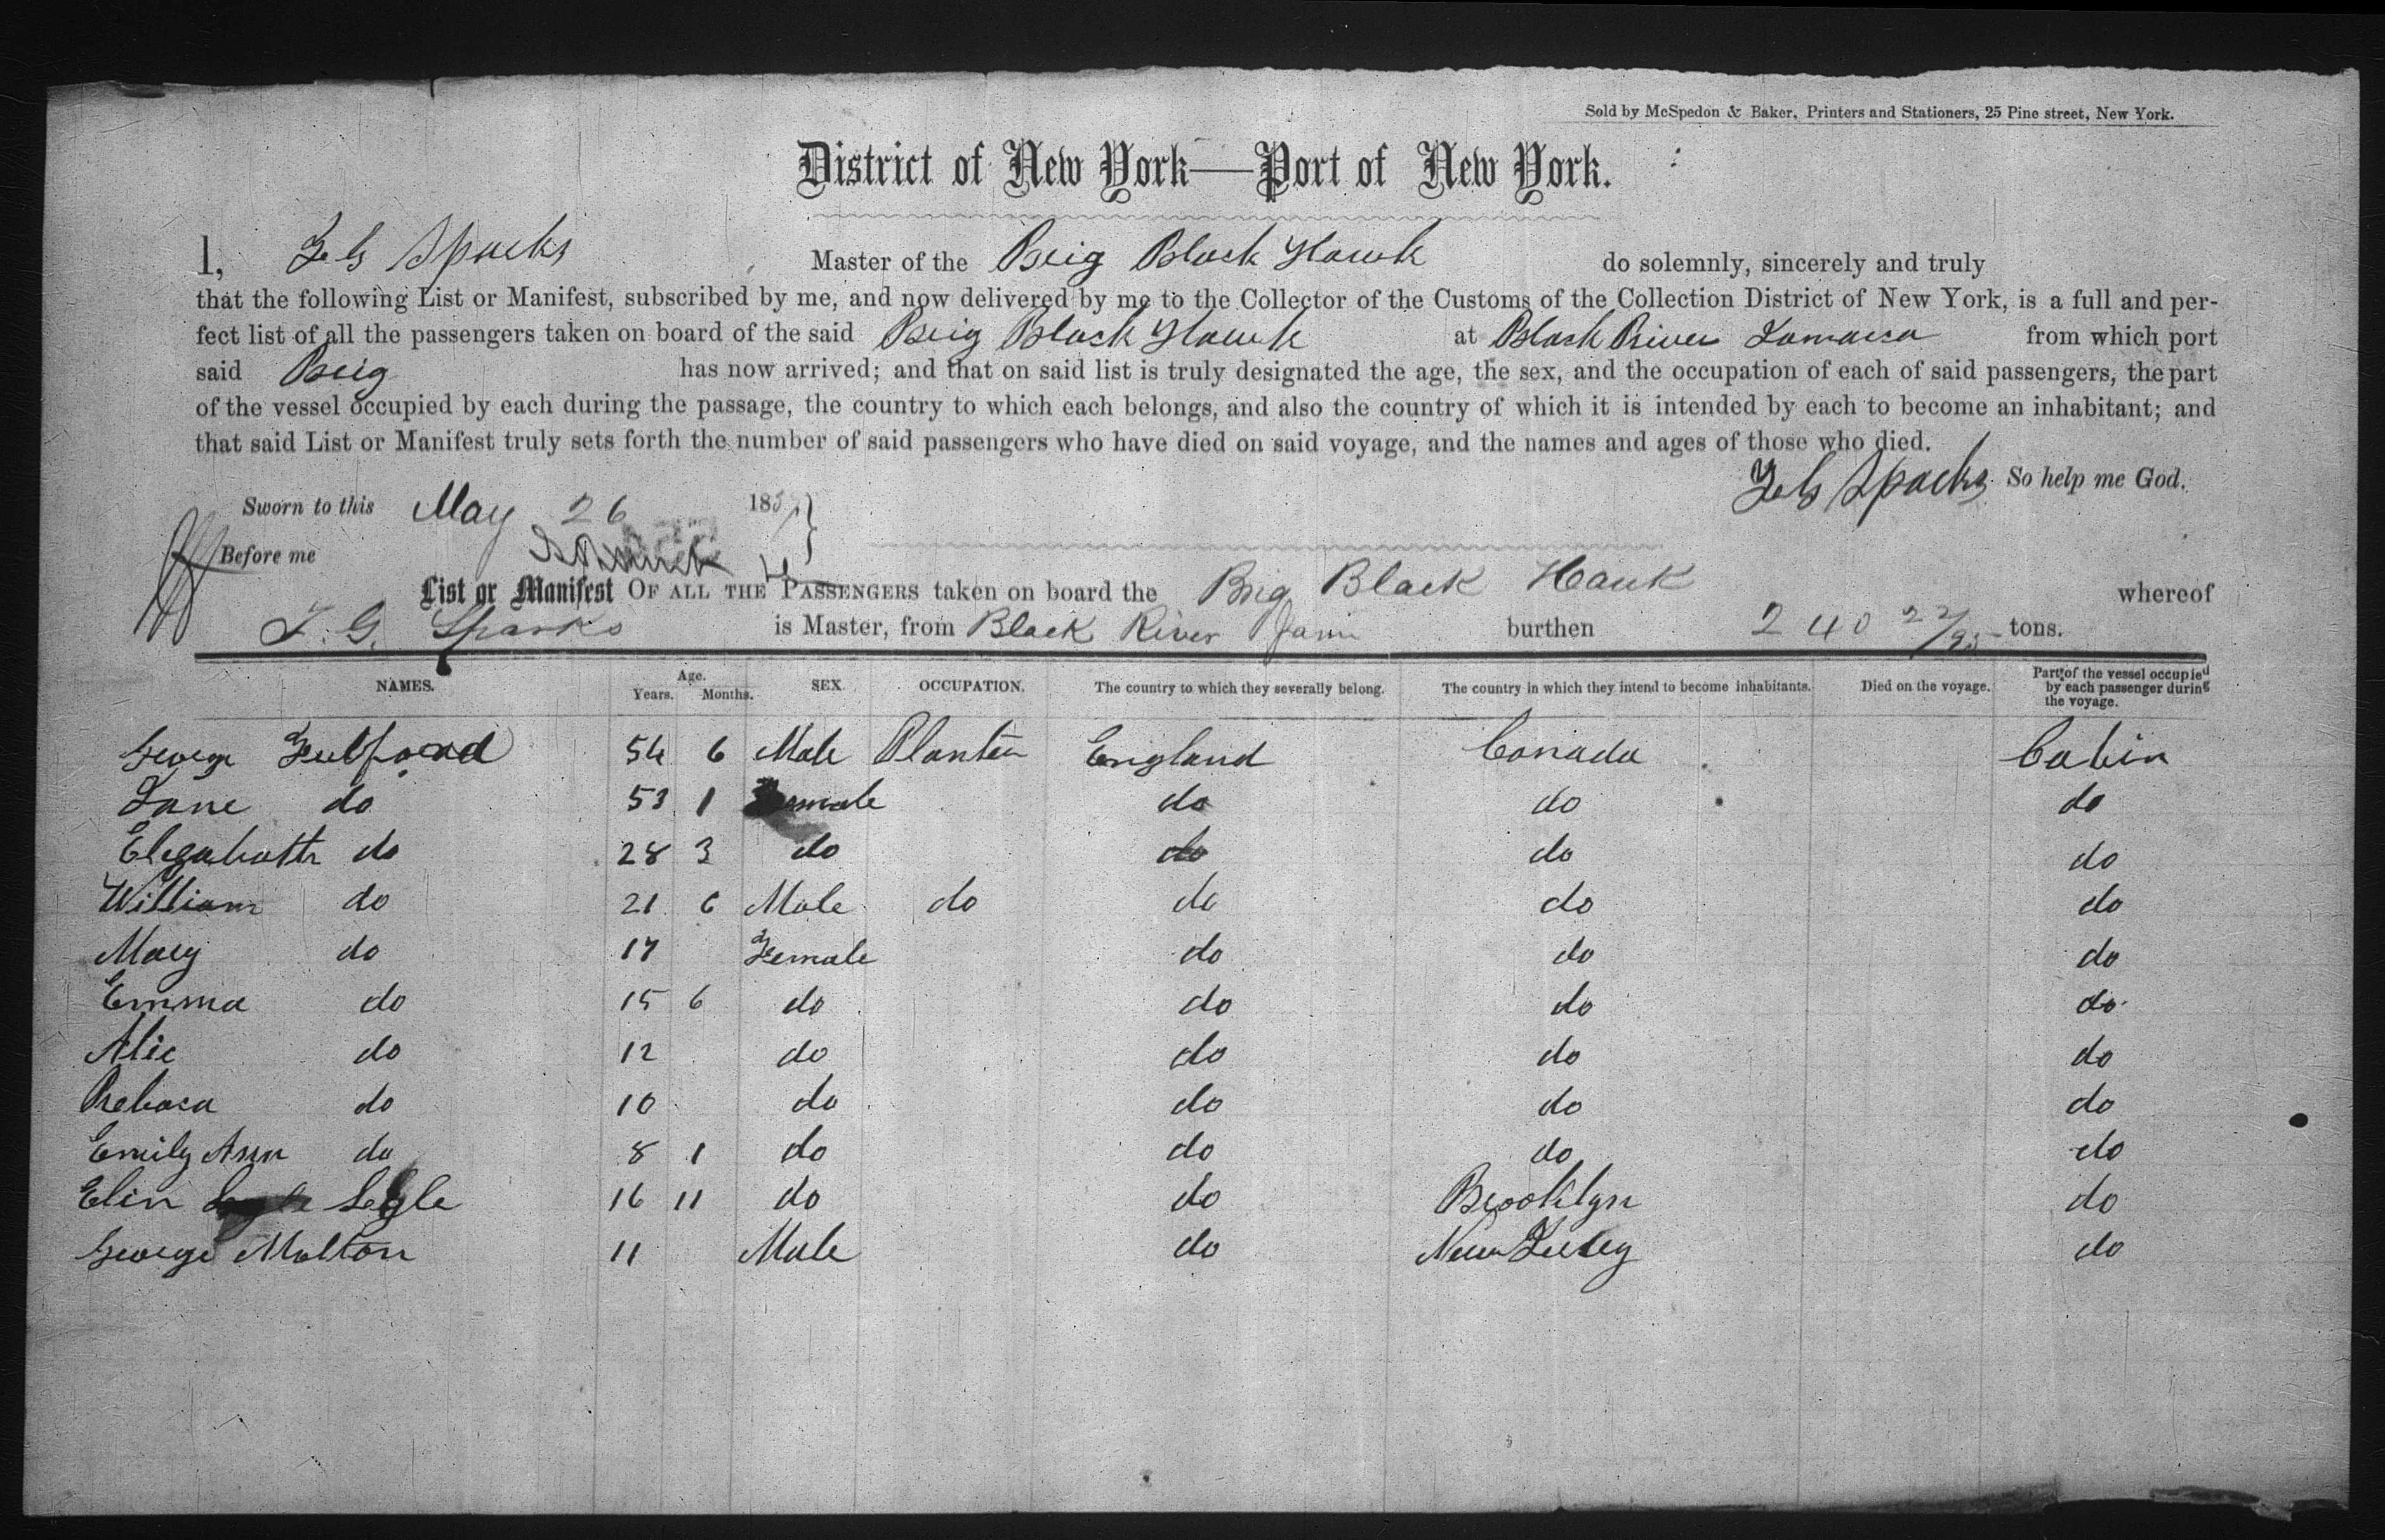 Sold by McSpedon & Baker, Printers and Stationers, 25 Pine street, New York.
District of New York—Port of New York.
I, Z G Sparks Master of the Brig Black Hawk do solemnly, sincerely and truly
that the following List or Manifest, subscribed by me, and now delivered by me to the Collector of the Customs of the Collection District of New York, is a full and per-
fect list of all the passengers taken on board of the said Brig Black Hawk at Black River Jamaica from which port
said Brig has now arrived; and that on said list is truly designated the age, the sex, and the occupation of each of said passengers, the part
of the vessel occupied by each during the passage, the country to which each belongs, and also the country of which it is intended by each to become an inhabitant; and
that said List or Manifest truly sets forth the number of said passengers who have died on said voyage, and the names and ages of those who died.
Z G Sparks So help me God.
Sworn to this May 26 1857
Before me
List or Manifest OF ALL THE PASSENGERS taken on board the Brig Black Hauk whereof
Z. G. Sparks is Master, from Black River Jam burthen 240 22/95 tons.
NAMES. Age. Years. Months. SEX. OCCUPATION. The country to which they severally belong. The country in which they intend to become inhabitants. Died on the voyage. Part of the vessel occupied by each passenger during the voyage.
George Fulford 54 6 Male Planter England Canada Cabin
Jane do 53 1 Female do do do
Elezabath do 28 3 do do do do
William do 21 6 Male do do do do
Mary do 17 Female do do do
Emma do 15 6 do do do do
Alic do 12 do do do do
Rebaca do 10 do do do do
Emily Ann do 8 1 do do do do
Elin Legle 16 11 do do Brooklyn do
George Molton 11 Male do New Jersey do